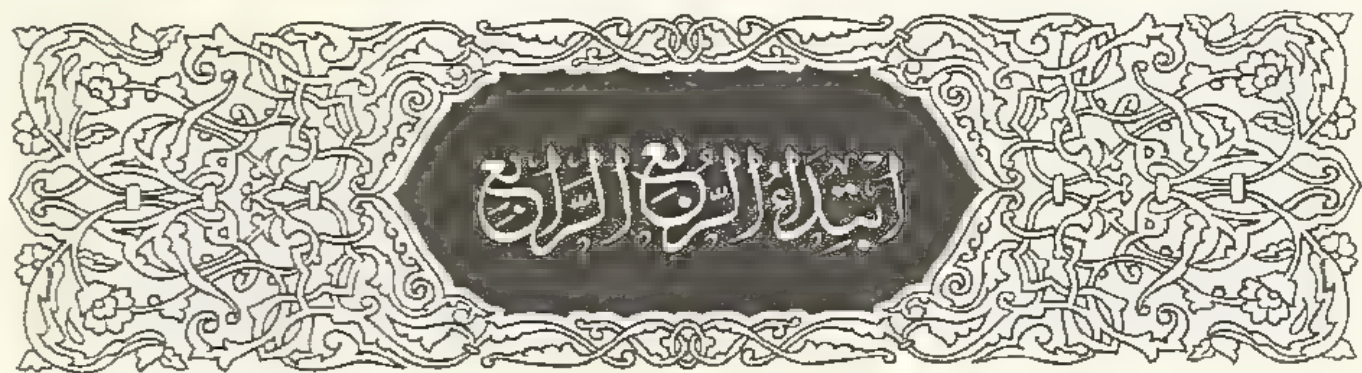 ابْتِدَاءُ الرُّبْعِ الرَّابِعِ